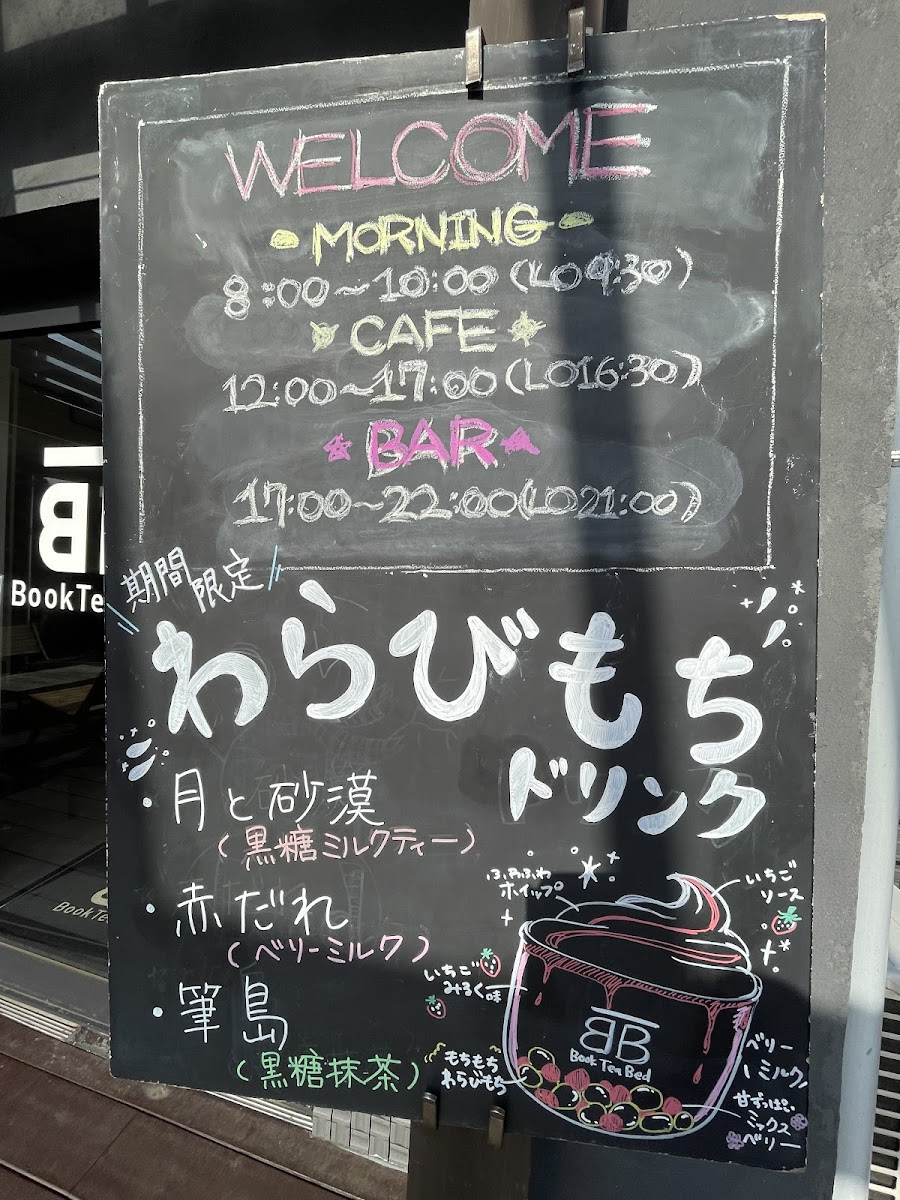 WELCOME
MORNING
8:00~10:00(LO9:30)
CAFE
12:00~17:00(LO16:30)
BAR
17:00~22:00(LO21:00)
期間
限定
わらびもち
ドリンク
・月と砂漠
(黒糖ミルクティー)
・赤だれ
(ベリーミルク)
・筆島
(黒糖抹茶)
ふわふわ
ホイップ
いちご
ソース
いちご
みるく味
BTB
Book Tea Bed
もちもち
わらびもち
ベリー
ミルク
甘ずっぱい
ミックス
ベリー
B
BookTe
BookTe